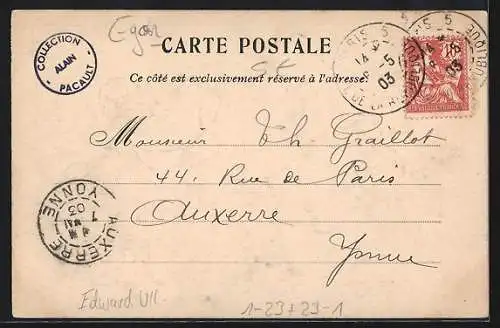 COLLECTION
ALAIN
PACAULT
CARTE POSTALE
Ce côté est exclusivement réservé à l'adresse
PARIS 5
14
8-5
03
Monsieur Th. Graillot
44, Rue de Paris
Auxerre
Yonne
AUXERRE
YONNE
03
Edward VII.
1-23+23-1